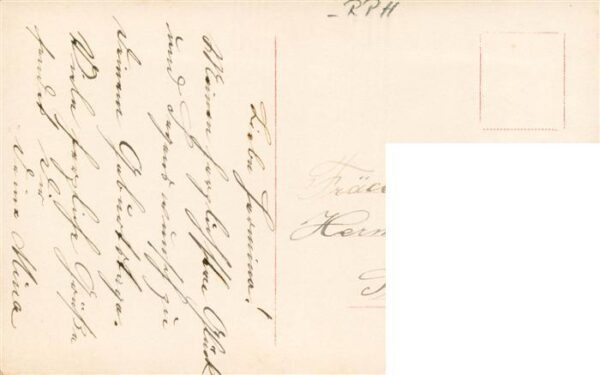 Liebe Hermina!
Meinen herzlichsten Glück
und Segenswunsch zu
Deinem Geburtstage.
Viele herzliche Grüße
sendet Dir
Deine Mina
RPH
Herm